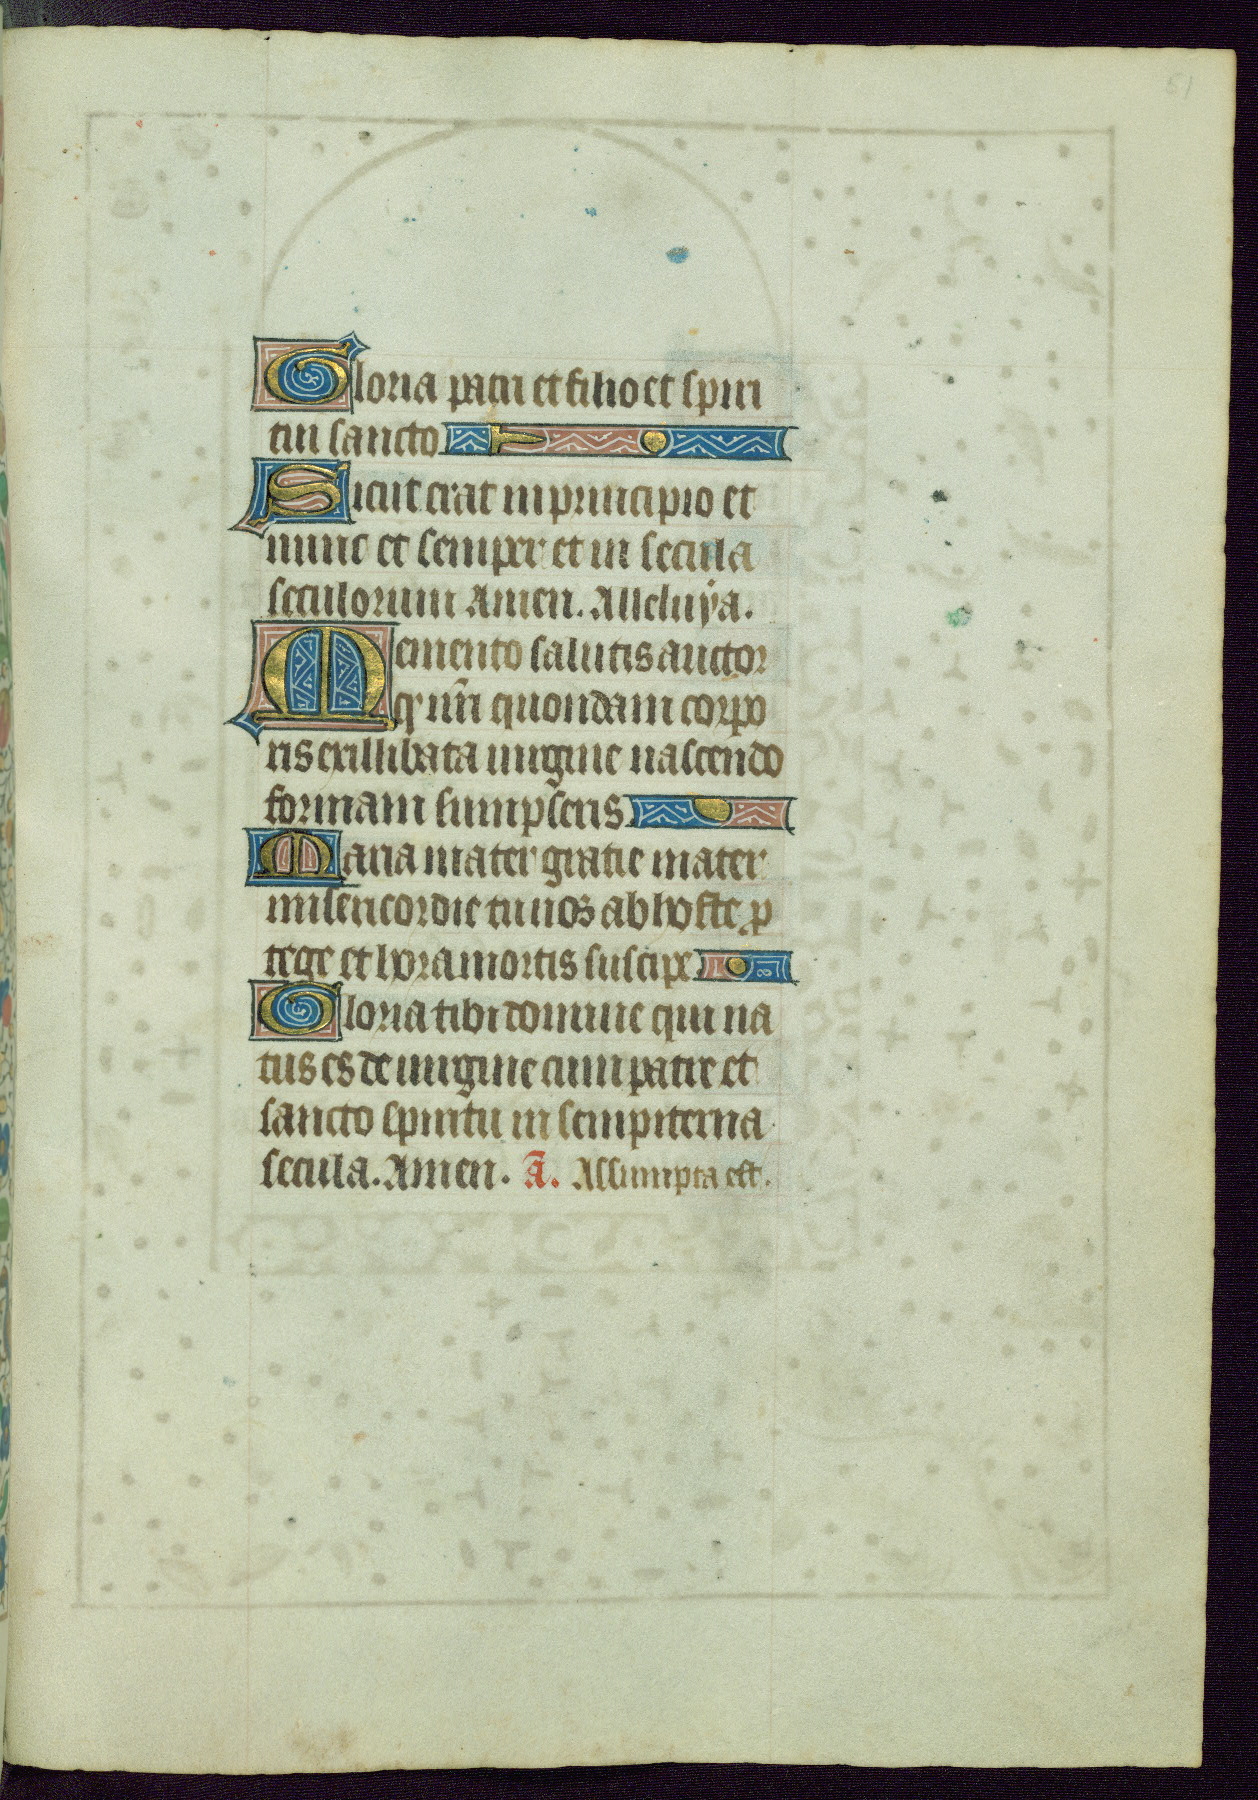 51
Gloria patri et filio et spiri
tui sancto
Sicut erat in principio et
nunc et semper et in secula
seculorum Amen. Alleluya.
Memento salutis auctor
qr nr̄i quondam corpo
ris ex illibata uirgine nascendo
formam sumpseris
Maria mater gratie mater
misericordie tu nos ab hoste ꝓ
tege et hora mortis suscipe
Gloria tibi domine qui na
tus es de uirgine cum patre et
sancto spiritu in sempiterna
secula. Amen. Ā. Assumpta est.